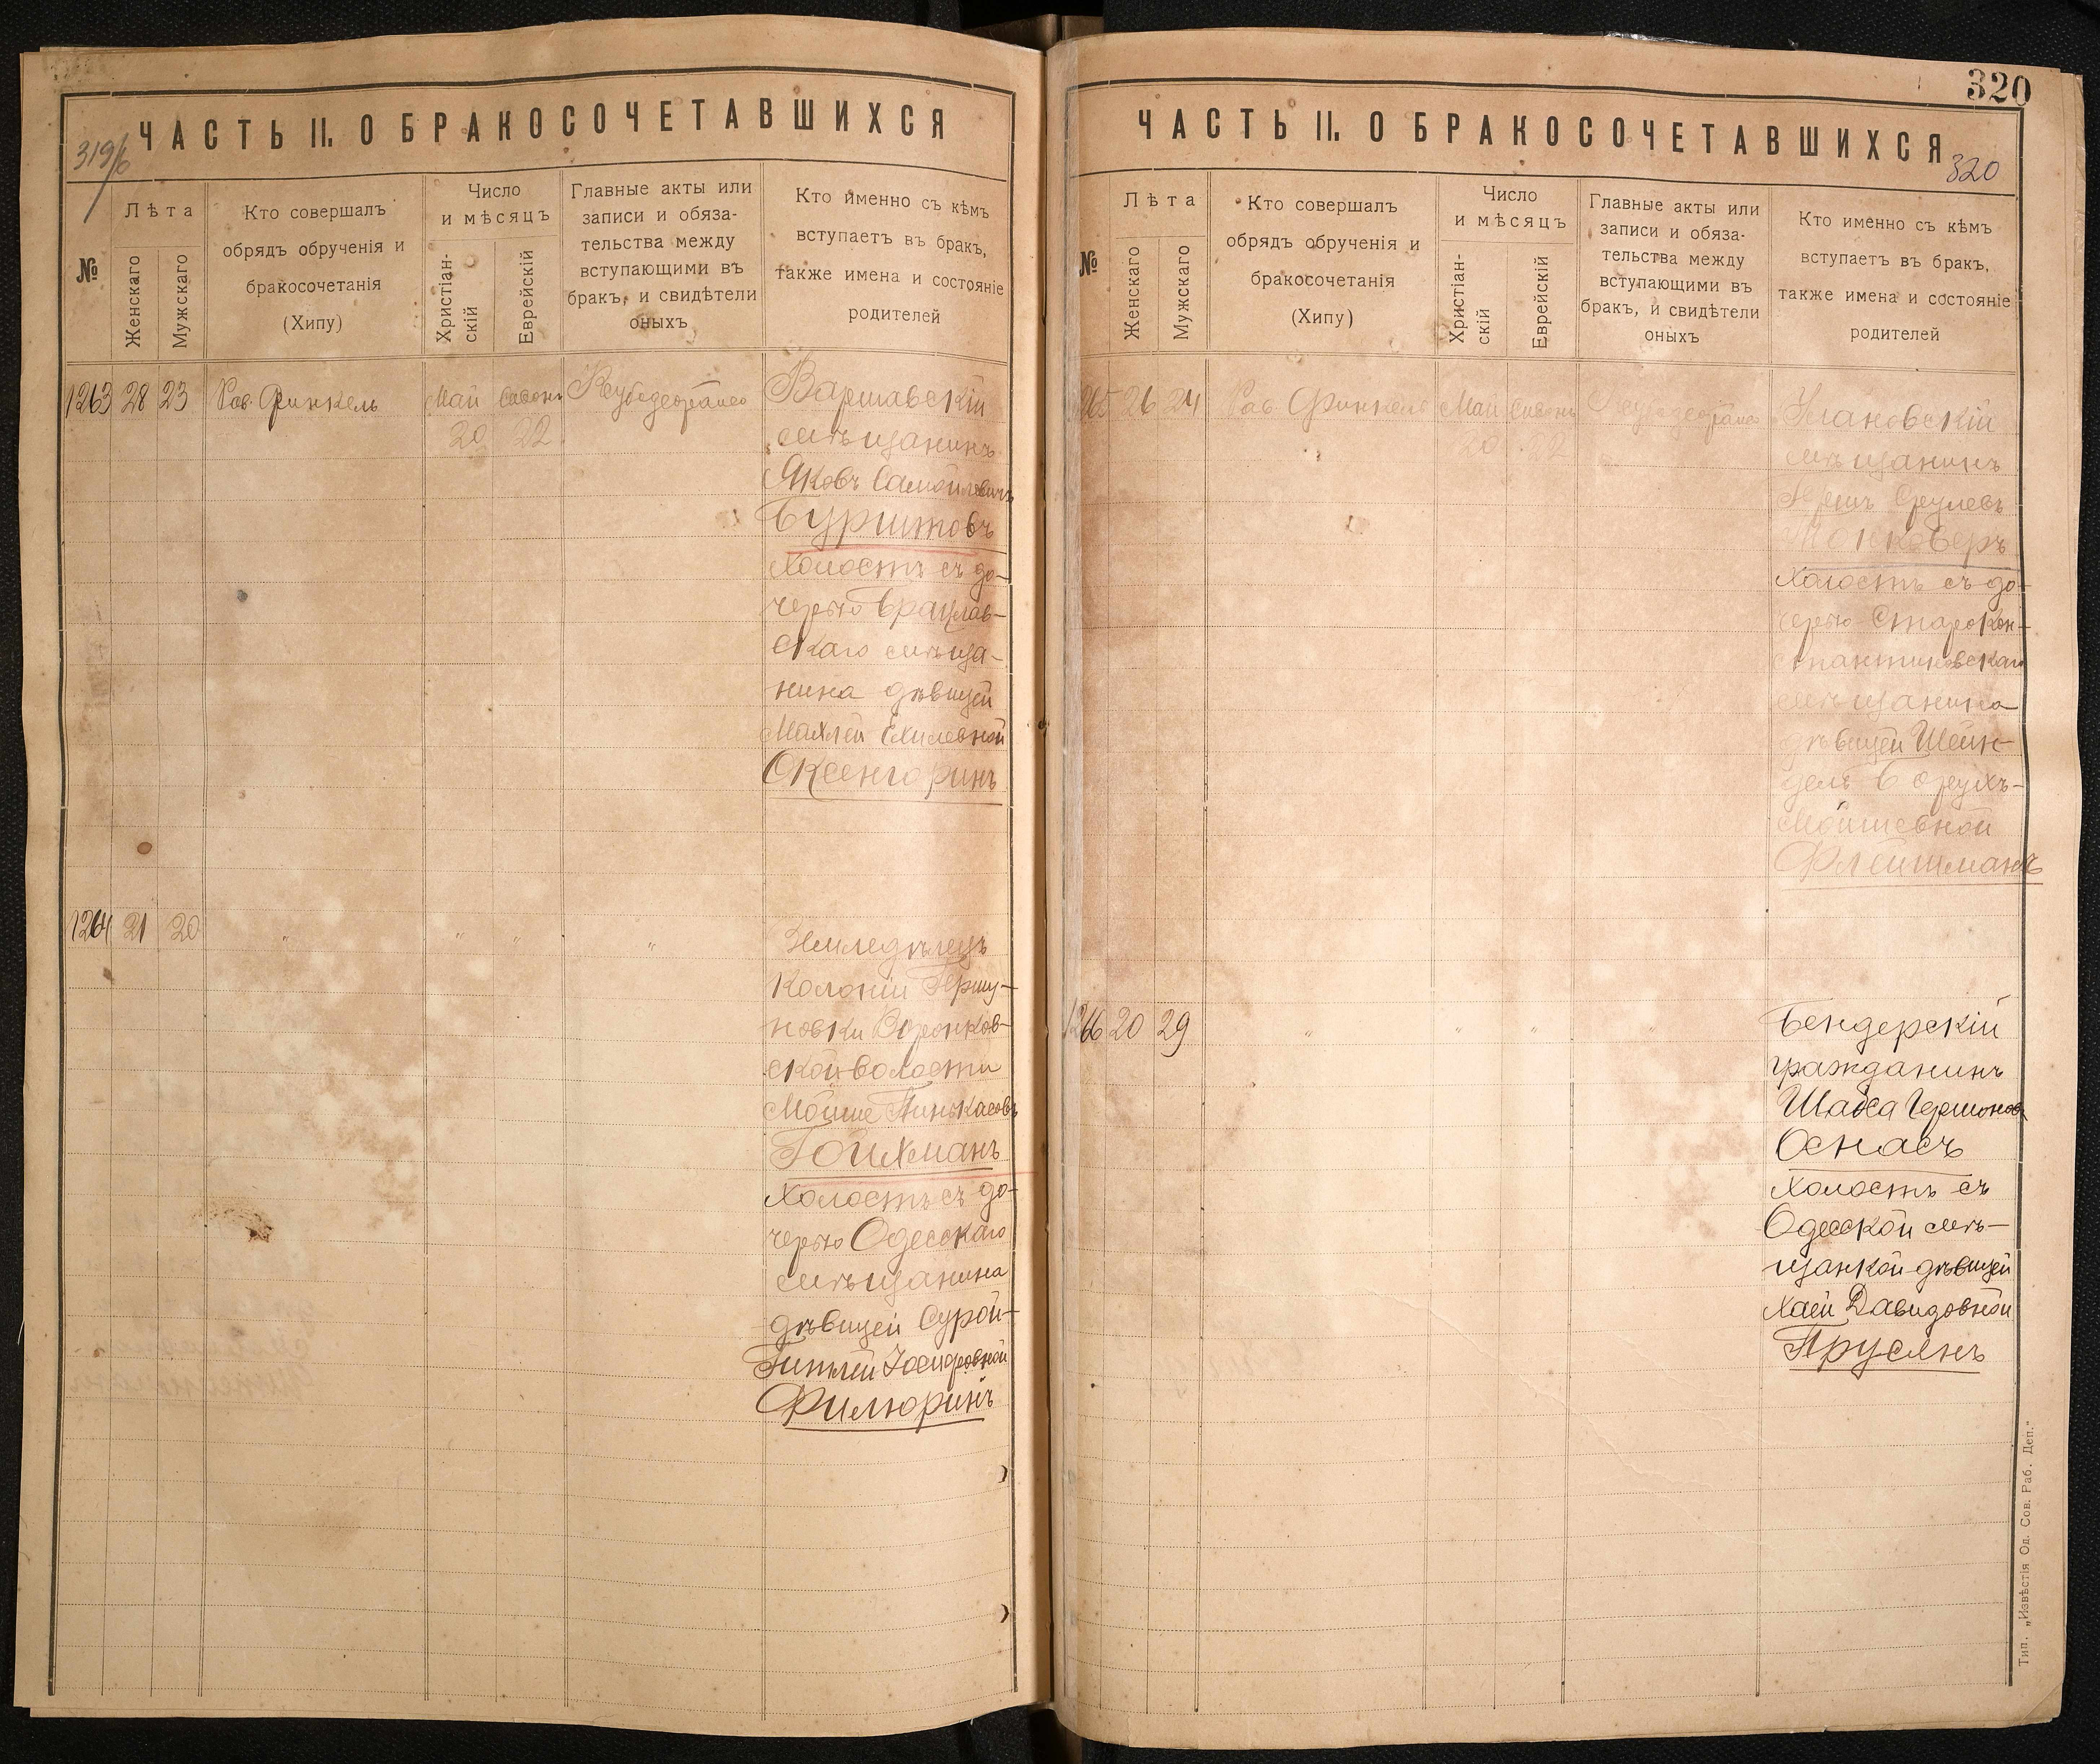 ЧАСТЬ II. О БРАКОСОЧЕТАВШИХСЯ
319/б
№
Лѣта
Женскаго
Мужскаго
Кто совершалъ
обрядъ обрученія и
бракосочетанія
(Хипу)
Число
и мѣсяцъ
Христіан-
скій
Еврейскій
Главные акты или
записи и обяза-
тельства между
вступающими въ
бракъ, и свидѣтели
оныхъ
Кто именно съ кѣмъ
вступаетъ въ бракъ,
также имена и состояніе
родителей
1263 28 23 Рав. Финкель Май Сивонъ
20 22
Варшавскій
мѣщанинъ
Яковъ Самойловичъ
Бурштовъ
холостъ съ до-
черью Брацлав-
скаго мѣща-
нина дѣвицей
Махлей Ехилевной
Оксенгоринъ
1264 21 20 " " " "
Земледѣлецъ
колоніи Гершу-
новки Воронков-
ской волости
Мойше Пинькасовъ
Гойхманъ
холостъ съ до-
черью Одесскаго
мѣщанина
дѣвицей Сурой-
Гитлей Іосифовной
Филюринъ
320
ЧАСТЬ II. О БРАКОСОЧЕТАВШИХСЯ
320
№
Лѣта
Женскаго
Мужскаго
Кто совершалъ
обрядъ обрученія и
бракосочетанія
(Хипу)
Число
и мѣсяцъ
Христіан-
скій
Еврейскій
Главные акты или
записи и обяза-
тельства между
вступающими въ
бракъ, и свидѣтели
оныхъ
Кто именно съ кѣмъ
вступаетъ въ бракъ,
также имена и состояніе
родителей
1265 26 24 Рав. Финкель Май Сивонъ
20 22
Улановскій
мѣщанинъ
Герш Срулевъ
холостъ съ до-
черью Старокон-
стантиновскаго
мѣщанина
дѣвицей Шейн-
дель Борухъ-
Мойшевной
Флейшманъ
1266 20 29 " " " "
Бендерскій
гражданинъ
Шайка Гершоновъ
Оснасъ
холостъ съ
Одесской мѣ-
щанкой дѣвицей
Хаей Давидовной
Прусянъ
Тип. „Извѣстія Од. Сов. Раб. Деп."